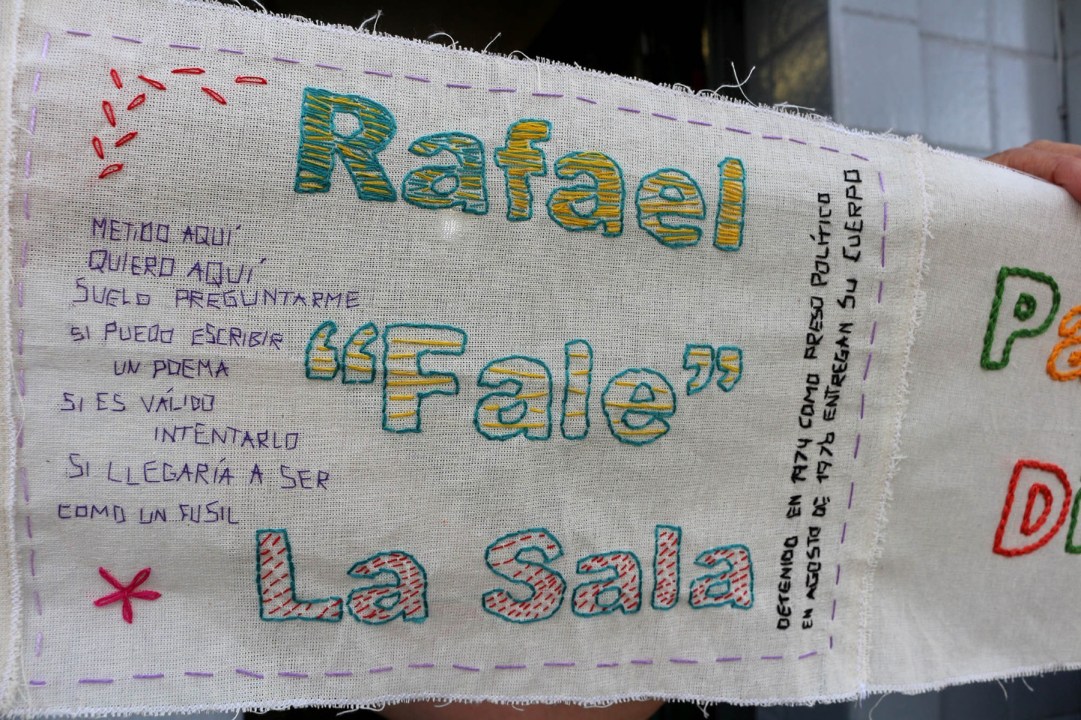 Rafael
METIDO AQUÍ
QUIERO AQUÍ
SUELO PREGUNTARME
SI PUEDO ESCRIBIR
UN POEMA
SI ES VÁLIDO
INTENTARLO
SI LLEGARÍA A SER
COMO UN FUSIL
"Fale"
La Sala
DETENIDO EN 1974 COMO PRESO POLÍTICO
EN AGOSTO DE 1976 ENTREGAN SU CUERPO